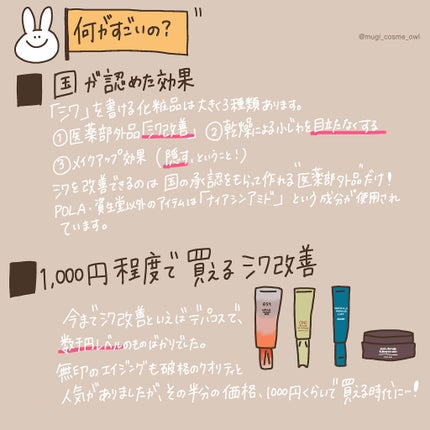 何がすごいの？
@mugi_cosme_owl
国が認めた効果
「シワ」を書ける化粧品は大きく3種類あります。
①医薬部外品「シワ改善」 ②乾燥による小じわを目立たなくする
③メイクアップ効果（隠す、ということ！）
シワを改善できるのは国の承認をもらって作れる"医薬部外品"だけ！
POLA・資生堂以外のアイテムは「ナイアシンアミド」という成分が使用され
ています。
1,000円程度で買えるシワ改善
今までシワ改善といえばデパコスで、
数千円レベルのものばかりでした。
無印のエイジングも破格のクオリティと
人気がありましたが、その半分の価格、1000円くらいで買える時代に…！